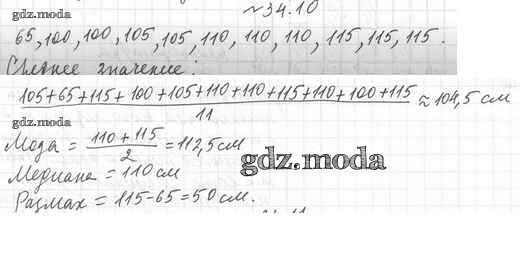 ~34.10
gdz.moda
65, 100, 100, 105, 105, 110, 110, 110, 115, 115, 115.
Среднее значение:
105+65+115+100+105+110+110+115+110+100+115
11
≈ 104,5 см
gdz.moda
Мода = 110+115
2
= 112,5 см
gdz.moda
Медиана = 110 см
Размах = 115-65=50 см.